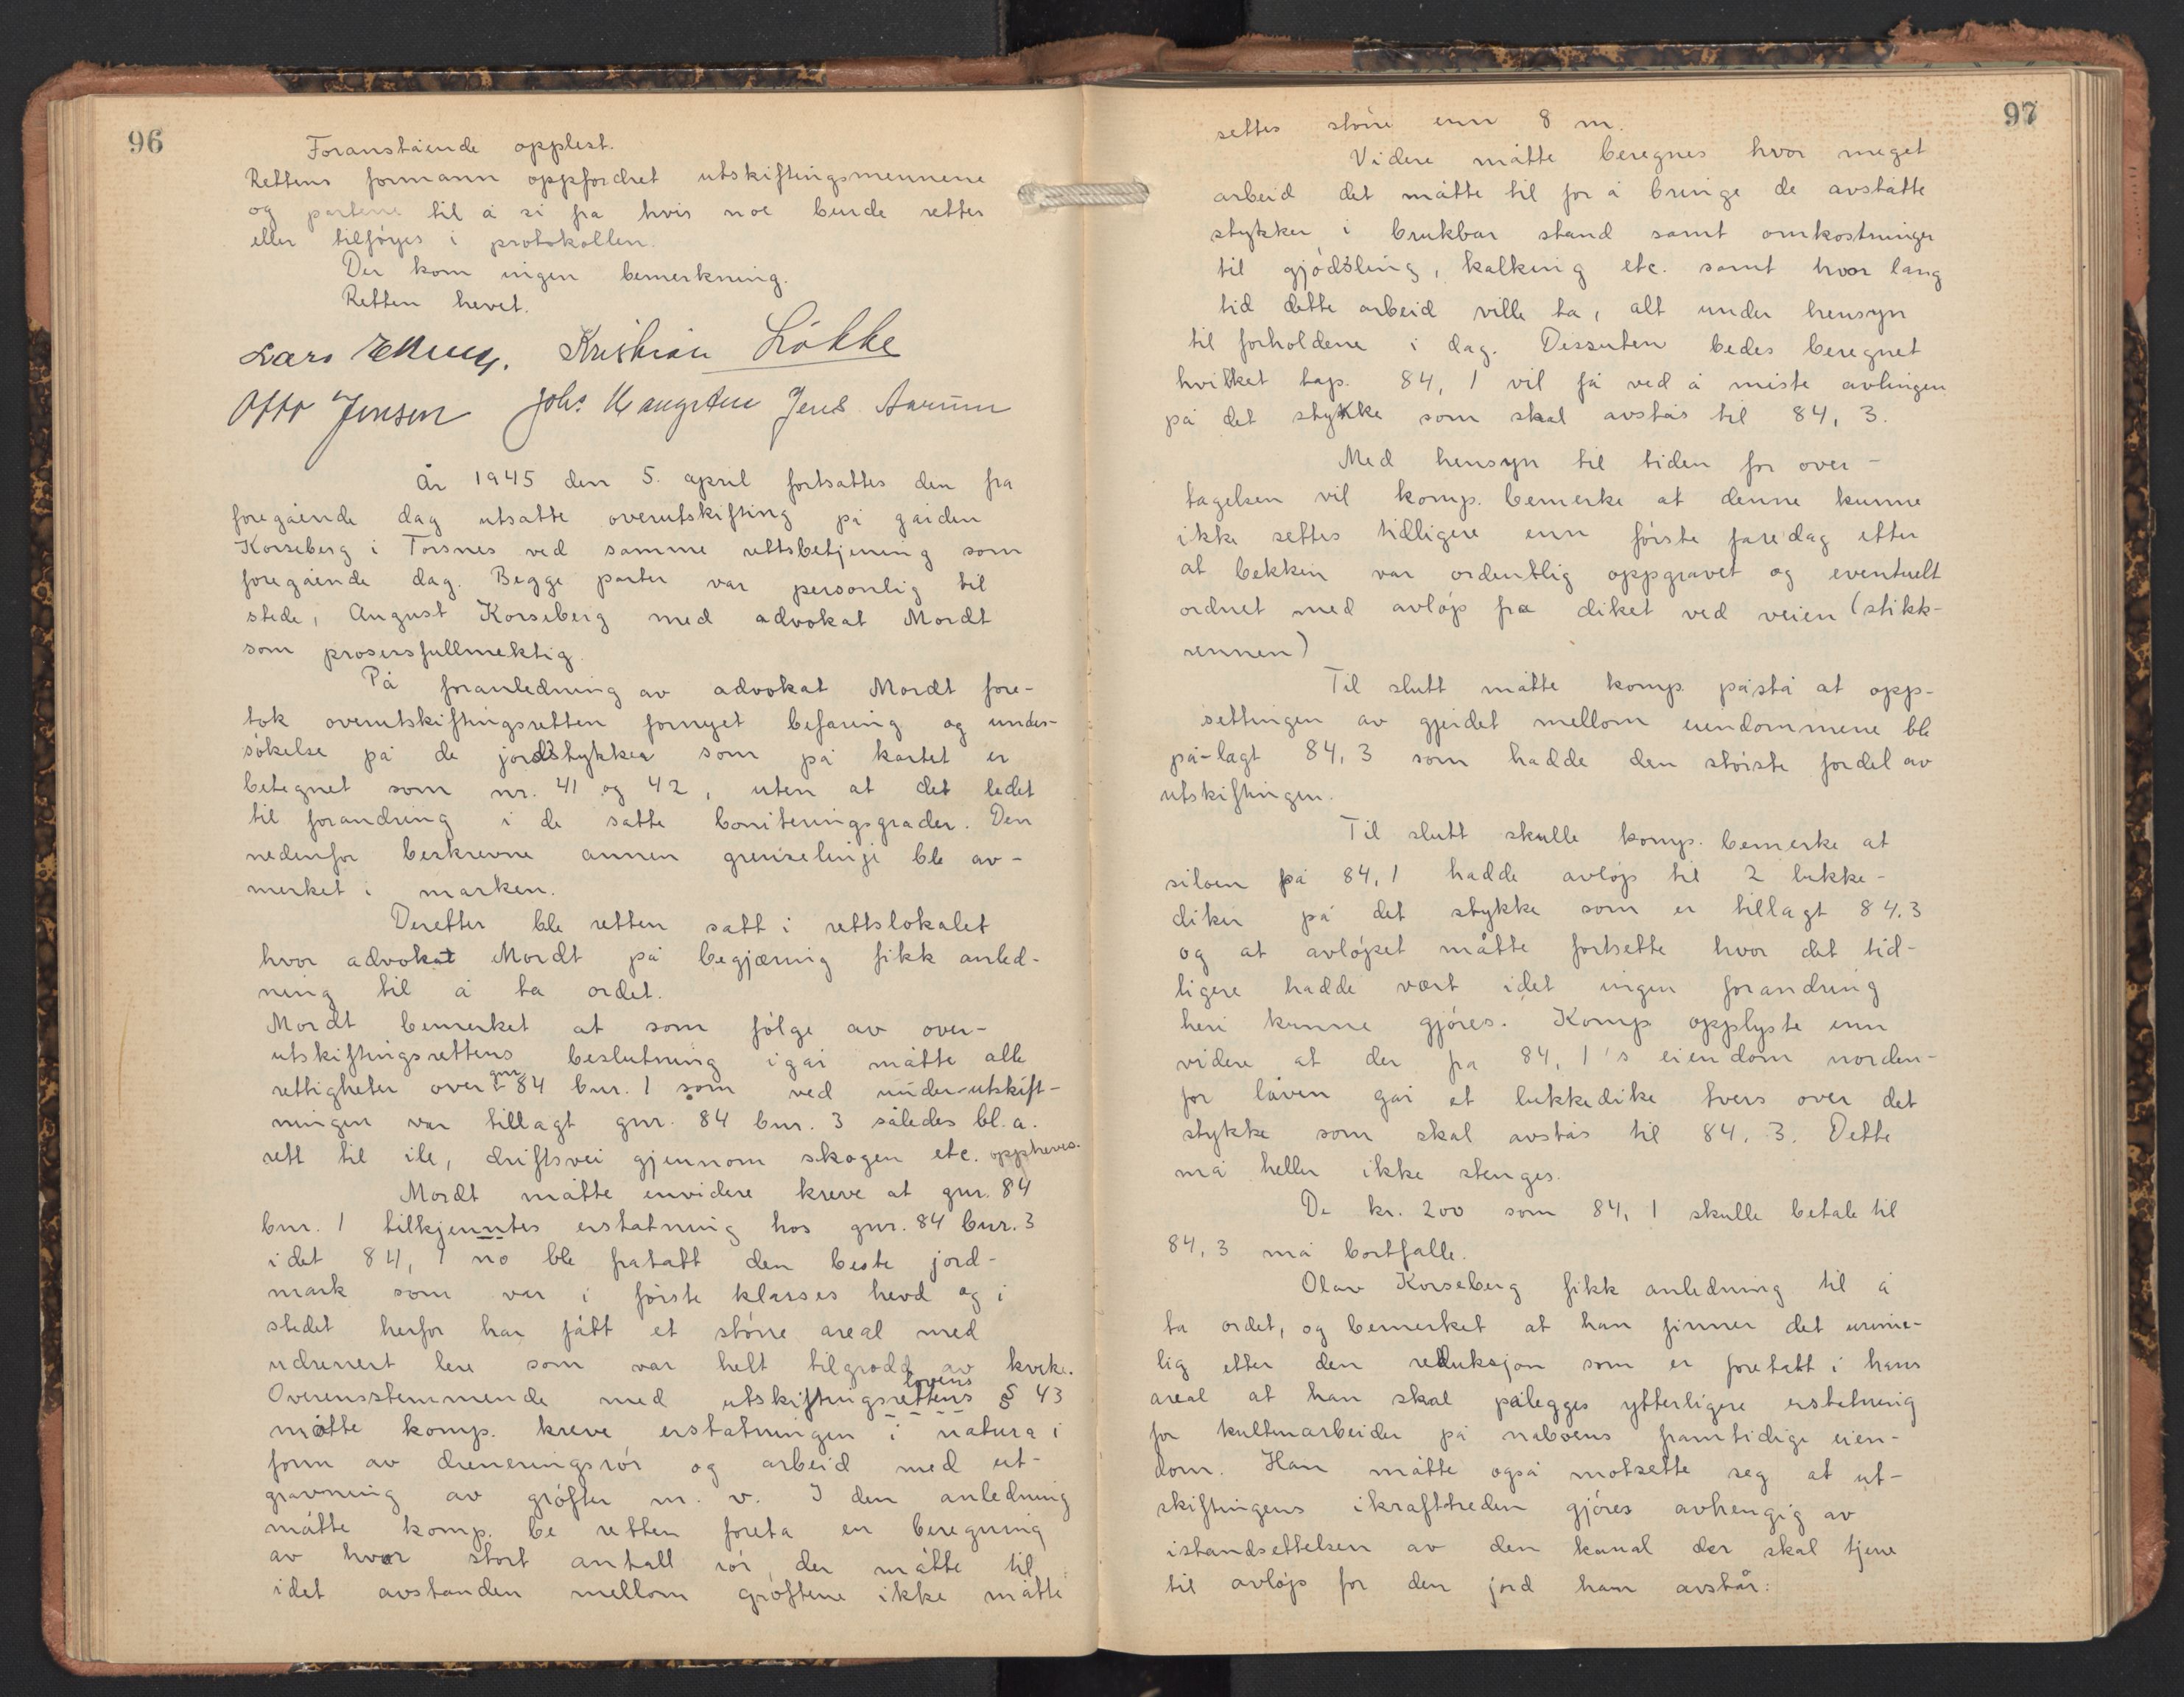 96
Foranstående opplest.
Rettens formann oppfordret utskiftingsmennene
og partene til å si fra hvis noe burde rettes
eller tilföyes i protokollen.
Der kom ingen bemerkning.
Retten hevet.
Lars Kristian Lökke
Otto Jensen Johs. Jens Aarum
År 1945 den 5. april fortsattes den fra
foregående dag utsatte overutskifting på gården
Korseberg i Torsnes ved samme rettsbetjening som
foregående dag. Begge parter var personlig til
stede, August Korseberg med advokat Mordt
som prosessfullmektig.
På foranledning av advokat Mordt fore-
tok overutskiftingsretten fornyet befaring og under-
sökelse på de jordstykker som på kartet er
betegnet som nr. 41 og 42, uten at det ledet
til forandring i de satte boniteringsgrader. Den
nedenfor beskrevne annen grenselinje ble av-
merket i marken.
Deretter ble retten satt i rettslokalet
hvor advokat Mordt på begjæring fikk anled-
ning til å ta ordet.
Mordt bemerket at som fölge av over-
utskiftingsrettens beslutning igår måtte alle
rettigheter over gnr. 84 bnr. 1 som ved under-utskift-
ningen var tillagt gnr. 84 bnr. 3 således bl. a.
rett til ile, driftsvei gjennom skogen etc. oppheves.
Mordt måtte envidere kreve at gnr. 84
bnr. 1 tilkjenntes erstatning hos gnr. 84 bnr. 3
idet 84, 1 no ble fratatt den beste jord-
mark som var i förste klasses hevd og i
stedet herfor har fått et större areal med
udrenert lere som var helt tilgrodd av kveke.
Overensstemmende med utskiftingsrettens lovens § 43
måtte komp. kreve erstatningen i natura i
form av dreneringsrör og arbeid med ut-
gravning av gröfter m. v. I den anledning
måtte komp. be retten foreta en beregning
av hvor stort antall rör der måtte til,
idet avstanden mellom gröftene ikke måtte
97
settes större enn 8 m.
Videre måtte beregnes hvor meget
arbeid det måtte til for å bringe de avståtte
stykker i brukbar stand samt omkostninger
til gjödsling, kalking etc. samt hvor lang
tid dette arbeid ville ta, alt under hensyn
til forholdene i dag. Dessuten bedes beregnet
hvilket tap 84, 1 vil få ved å miste avlingen
på det stykke som skal avstås til 84, 3.
Med hensyn til tiden for over-
tagelsen vil komp. bemerke at denne kunne
ikke settes tidligere enn förste faredag etter
at bekken var ordentlig oppgravet og eventuelt
ordnet med avlöp fra diket ved veien (stikk-
rennen)
Til slutt måtte komp. påstå at opp-
settingen av gjerdet mellom eiendommene ble
på-lagt 84, 3 som hadde den störste fordel av
utskiftingen.
Til slutt skulle komp. bemerke at
siloen på 84, 1 hadde avlöp til 2 lukke-
diker på det stykke som er tillagt 84.3
og at avlöpet måtte fortsette hvor det tid-
ligere hadde vært idet ingen forandring
heri kunne gjöres. Komp opplyste enn
videre at der fra 84, 1's eiendom norden-
for låven går et lukkedike tvers over det
stykke som skal avstås til 84. 3. Dette
må heller ikke stenges.
De kr. 200 som 84, 1 skulle betale til
84, 3 må bortfalle.
Olav Korseberg fikk anledning til å
ta ordet, og bemerket at han finner det urime-
lig etter den reduksjon som er foretatt i hans
areal at han skal pålegges ytterligere erstatning
for kulturarbeider på naboens framtidige eien-
dom. Han måtte også motsette seg at ut-
skiftingens ikrafttreden gjöres avhengig av
istandsettelsen av den kanal der skal tjene
til avlöp for den jord han avstår.